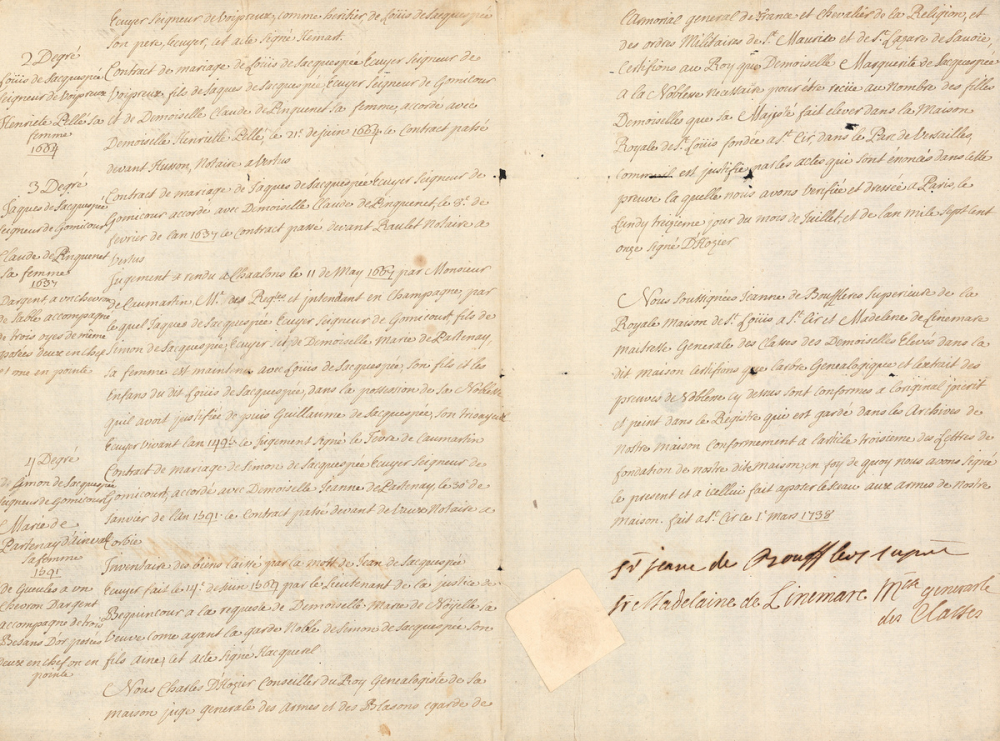 Ecuyer Seigneur de Voipreux, comme heritier de Loüis de Sacquespée
son pere, Ecuyer, cet acte signé
2 Degré
Loüis de Sacquespée
Seigneur de Voipreux
Henriete Pillé sa
femme
1664
Contract de mariage de Loüis de Sacquespée Ecuyer Seigneur de
Voipreux fils de Jaques de Sacquespée, Ecuyer Seigneur de Gomicour
et de Demoiselle Claude de Pinquenet sa femme, accordé avec
Demoiselle Henriette Pillé, le 21e de juin 1664 le Contract passé
devant Husson, Notaire a Vertus
3 Degré
Jaques de Sacquespée
Seigneur de Gomicourt
Claude de Pinquenet
sa femme
1637
Dargent a un chevron
de sable accompagné
de trois oyes de même
posées deux en chef
et une en pointe
Contract de mariage de Jaques de Sacquespée Ecuyer Seigneur de
Gomicour accordé avec Demoiselle Claude de Pinquenet, le 8e de
fevrier de lan 1637 le Contract passé devant Paulet Notaire a
Vertus
Jugement a rendu a Chaalons le 11 de May 1667 par Monsieur
de Caumartin, Me des Reqtes et jntendant en Champagne, par
lequel Jaques de Sacquespée, Ecuyer Seigneur de Gomicourt fils de
Simon de Sacquespée, Ecuyer, et de Demoiselle Marie de Partenay,
sa femme est maintenu avec Loüis de Sacquespée, son fils et les
Enfans du dit Loüis de Sacquespée, dans la possession de sa Noblesse
quil avoit justifiée de puis Guillaume de Sacquespée, son trisayeul
Ecuyer vivant lan 1493, le jugement signé le Febvre de Caumartin
4 Degré
de Simon de Sacquespée
Seigneur de Gomicourt
Marie de
Partenay
sa femme
1591
De Gueules a un
chevron Dargent
accompagné de trois
Besans D'or posées
deux en chef un en
pointe
Contract de mariage de Simon de Sacquespée Ecuyer Seigneur de
Gomicourt, accordé avec Demoiselle Jeanne de Partenay, le 30 de
janvier de lan 1591. le Contract passé devant de Notaire a
Corbie
Jnventaire des biens laissé par la mort de Jean de Sacquespée
Ecuyer fait le 14e de juin 1569 par le Lieutenant de la justice de
Bequincour a la requeste de Demoiselle Marie de Nojelle sa
Veuve comme ayant la garde Noble de Simon de Sacquespée son
fils ainé, cet acte signé
Nous Charles D'Hozier Conseiller du Roy Genealogiste de sa
maison juge generale des Armes et des Blasons egarde de
Larmorial general de France et Chevalier de la Religion, et
des ordres Militaires de St. Maurice et de St. Lazare de Savoie,
Certifions au Roy que Demoiselle Marguerite de Sacquespée
a la Noblesse necessaire pour être recüe au Nombre des filles
Demoiselles que sa Majesté fait elever dans la Maison
Royale de St. Loüis fondée a St. Cir, dans le Parc de Versailles,
comme il est justifié par les actes que sont énoncés dans cette
preuve la quelle nous avons Verifiée et dressée a Paris, le
Lundy trizieme jour du mois de Juillet, et de lan mile sept cent
onze signé D'Hozier
Nous soussignées Jeanne de Boufflers Superieure de la
Royale Maison de St. Loüis a St. Cir et Madelene de Linemare
maitresse Generale des Classes des Demoiselles Elevés dans la
dit maison Certifions que larbre Genealogique et Lextrait des
preuves de Noblesse Cy dessus sont conformes a Loriginal jnscrit
et peint dans le Registre qui est gardé dans les Archives de
Nostre maison Conformement a Larticle troisieme des Lettres de
fondation de nostre dite maison, en foy de quoy nous avons signé
le present et a icelluy fait aposer le seau aux armes de Nostre
maison. fait a St. Cir ce 1er Mars 1738
Sr jeane de Boufflers supre
Sr Madelaine de Linemare Mtre generalle
des Classes